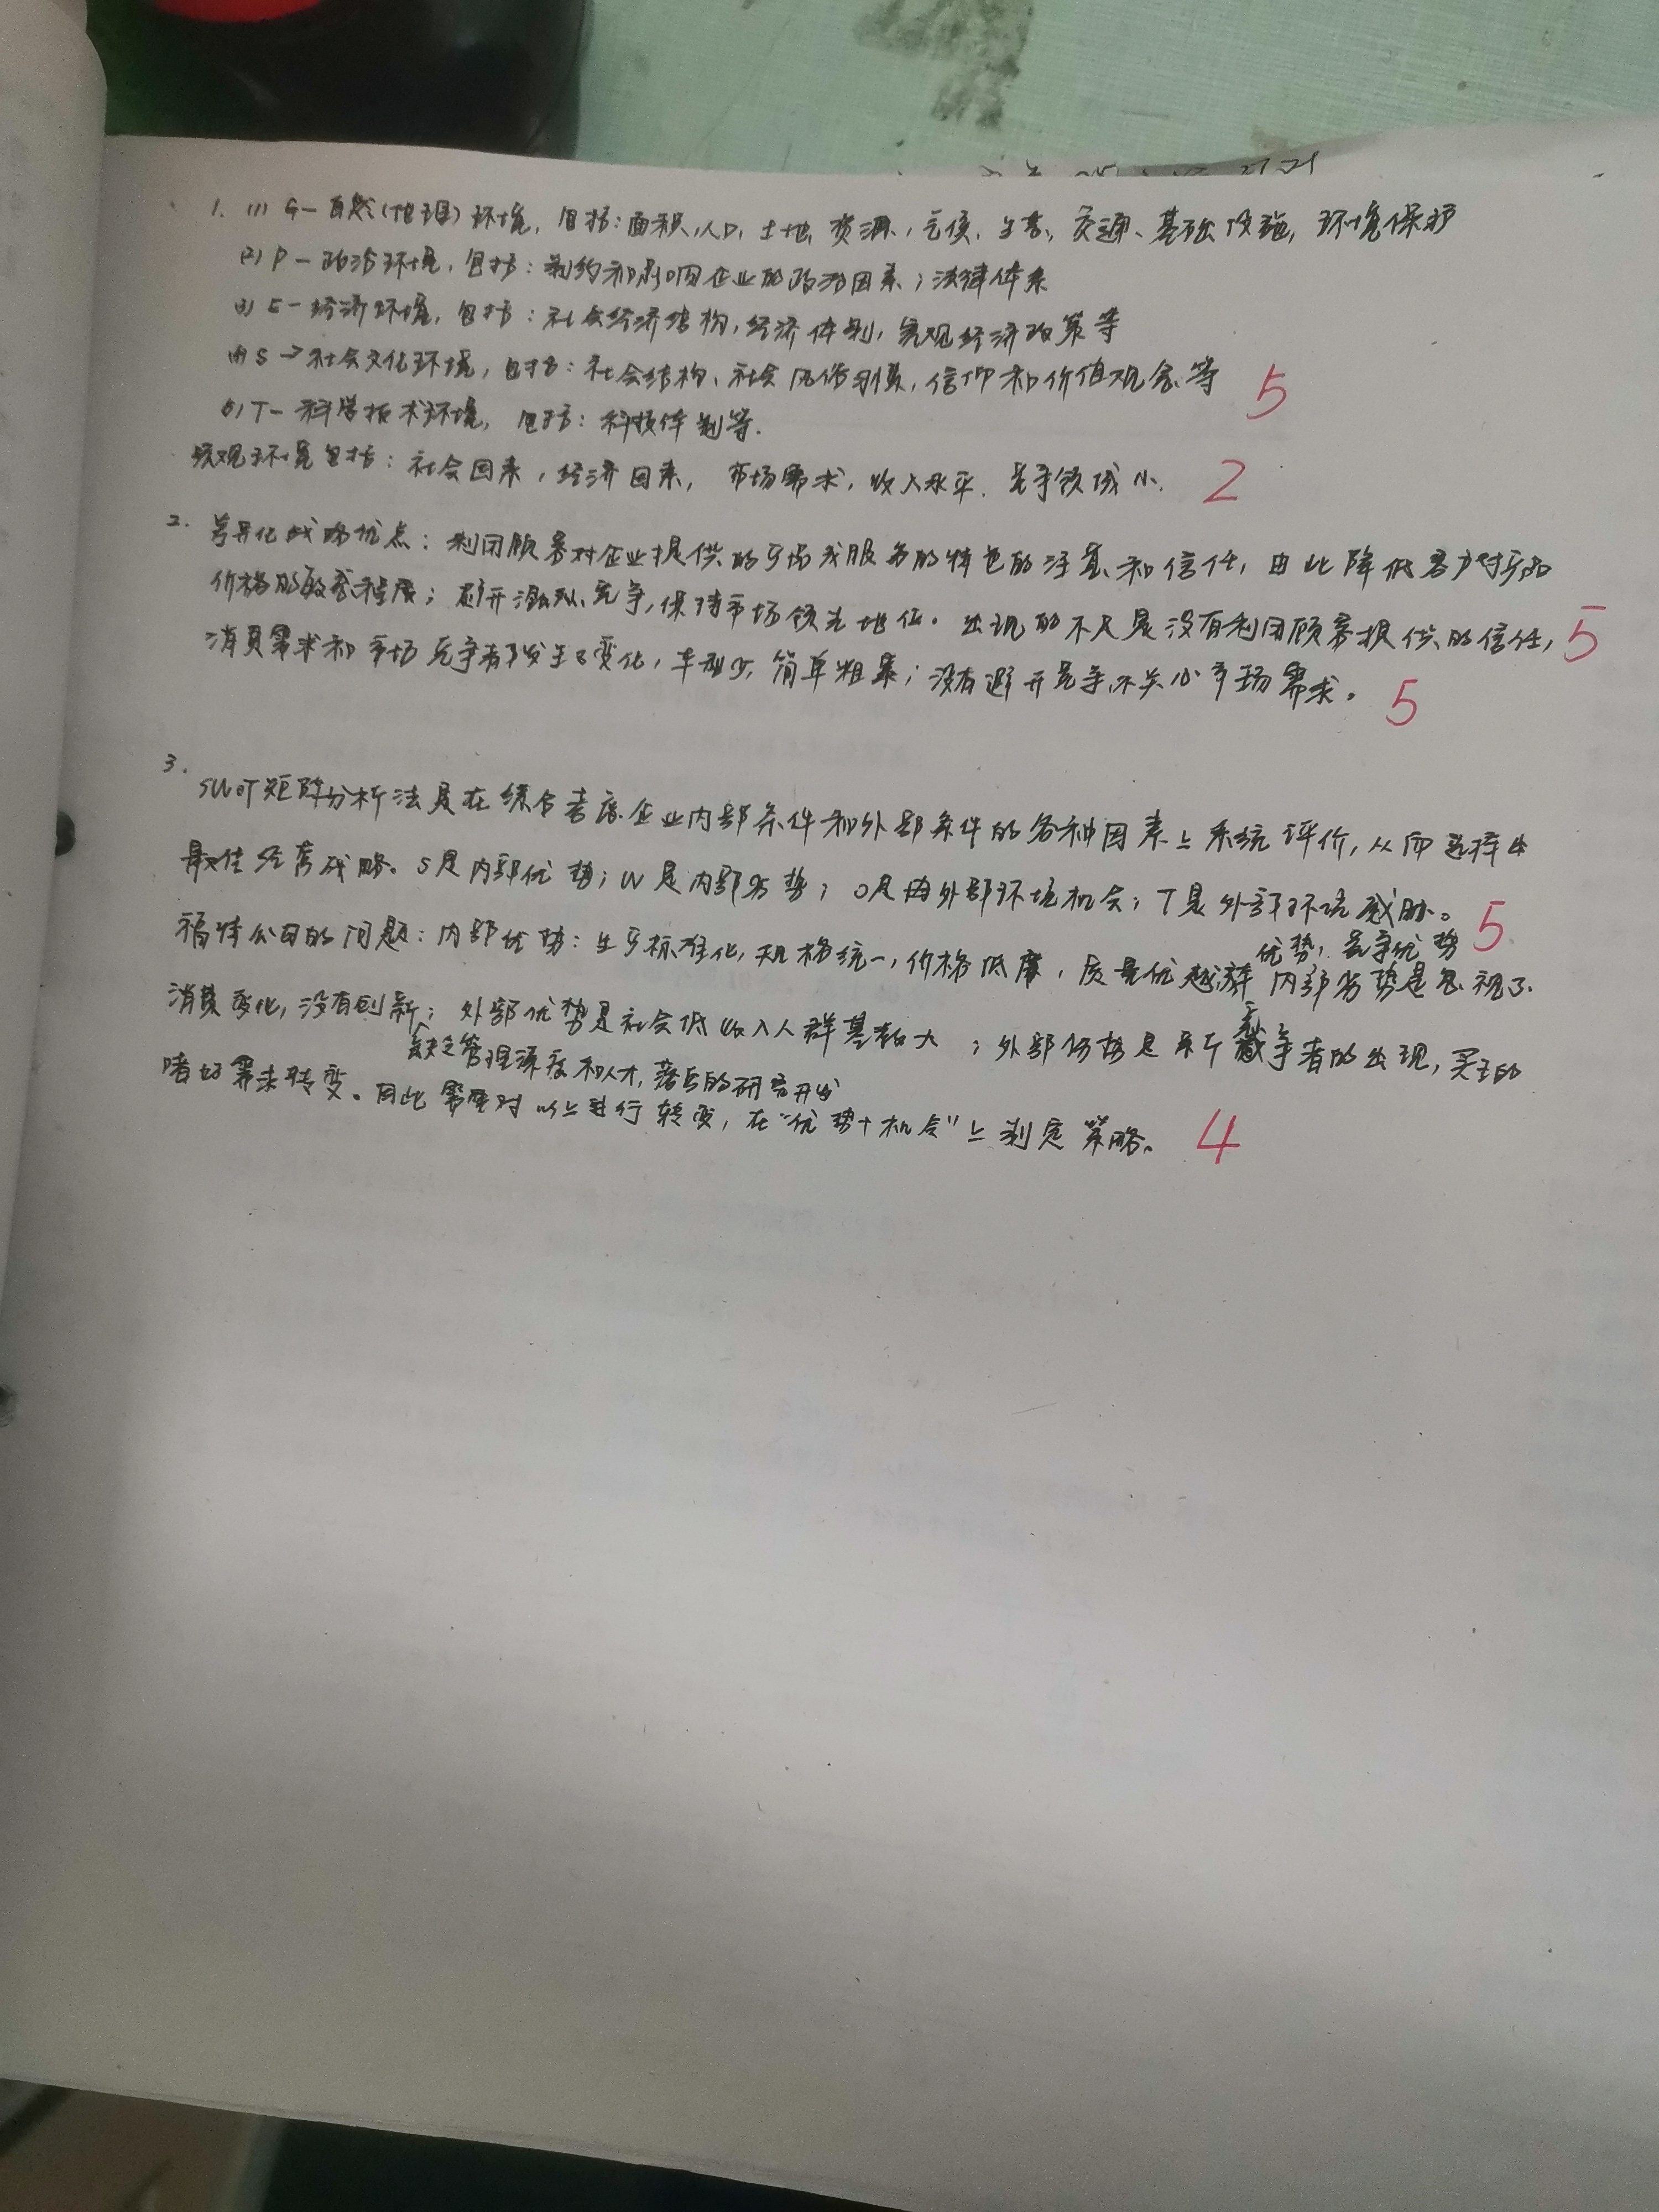 1. (1) G—自然(地理)环境，包括：面积，人口，土地，资源，气候，生态，交通、基础设施，环境保护
(2) P—政治环境，包括：制约和影响企业的政治因素；法律体系
(3) E—经济环境，包括：社会经济结构，经济体制，宏观经济政策等
(4) S→社会文化环境，包括：社会结构、社会风俗习惯，信仰和价值观念等 5
(5) T—科学技术环境，包括：科技体制等.
环境包括：社会因素，经济因素，市场需求，收入水平．竞争领域小. 2
2. 差异化战略优点：利用顾客对企业提供的产品或服务的特色的注意和信任，由此降低客户对产品
价格的敏感程度；避开激烈竞争，保持市场领先地位。出现的不足是没有利用顾客提供的信任， 5
消费需求和市场竞争都发生了变化，车型少，简单粗暴；没有避开竞争，不关心市场需求。 5
3.
SWOT矩阵分析法是在综合考虑企业内部条件和外部条件的各种因素上系统评价，从而选择出
最佳经营战略。S是内部优势；W是内部劣势；O是外部环境机会；T是外部环境威胁。 5
福特公司的问题：内部优势：生产标准化，规格统一，价格低廉，质量优越，内部劣势是忽视了
优势，竞争优势
消费变化，没有创新；外部优势是社会低收入人群基数大；外部是新竞争者的出现，买主的
缺乏管理深度和人才，落后的研究开发
嗜好需求转变。因此需要对以上进行转变，在“优势+机会”上制定策略。 4